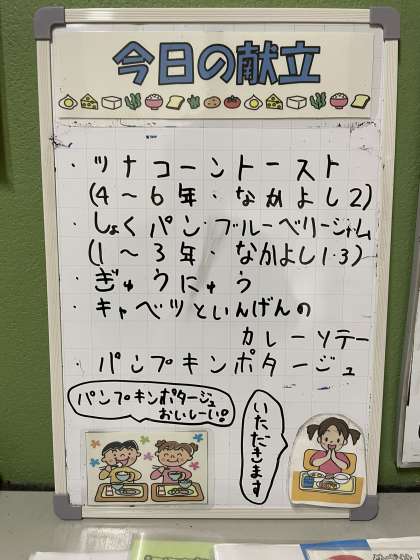 今日の献立
・ツナコーントースト
(4～6年・なかよし2)
・しょくパン・ブルーベリージャム
(1～3年・なかよし1・3)
・ぎゅうにゅう
・キャベツといんげんの
カレーソテー
・パンプキンポタージュ
パンプキンポタージュ
おいしーい!
いただきます